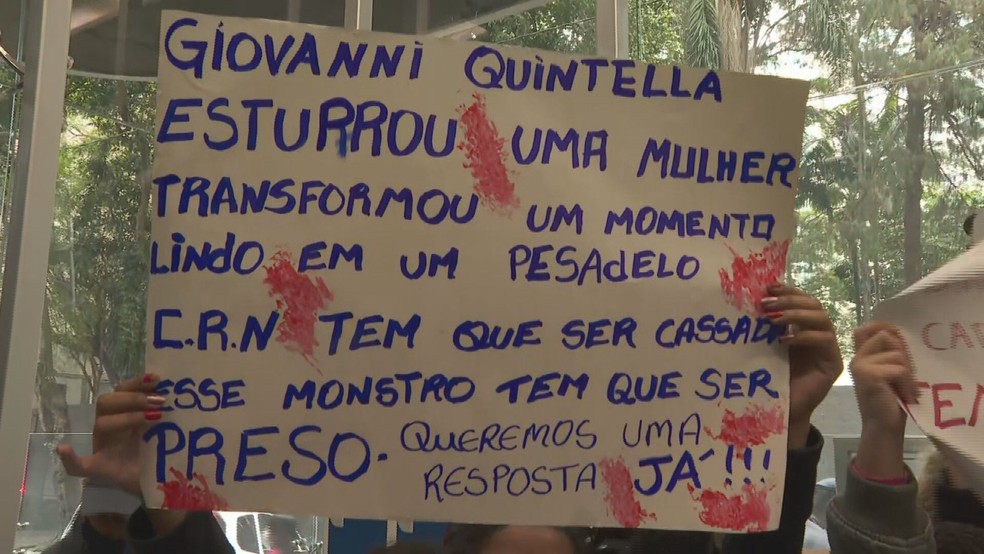 GIOVANNI QUINTELLA
ESTURROU UMA MULHER
TRANSFORMOU UM MOMENTO
LINdO EM UM PESAdELO
C.R.N TEM QUE SER CASSADA
ESSE MONSTRO TEM QUE SER
PRESO. QUEREMOS UMA
RESPOSTA JÁ !!!